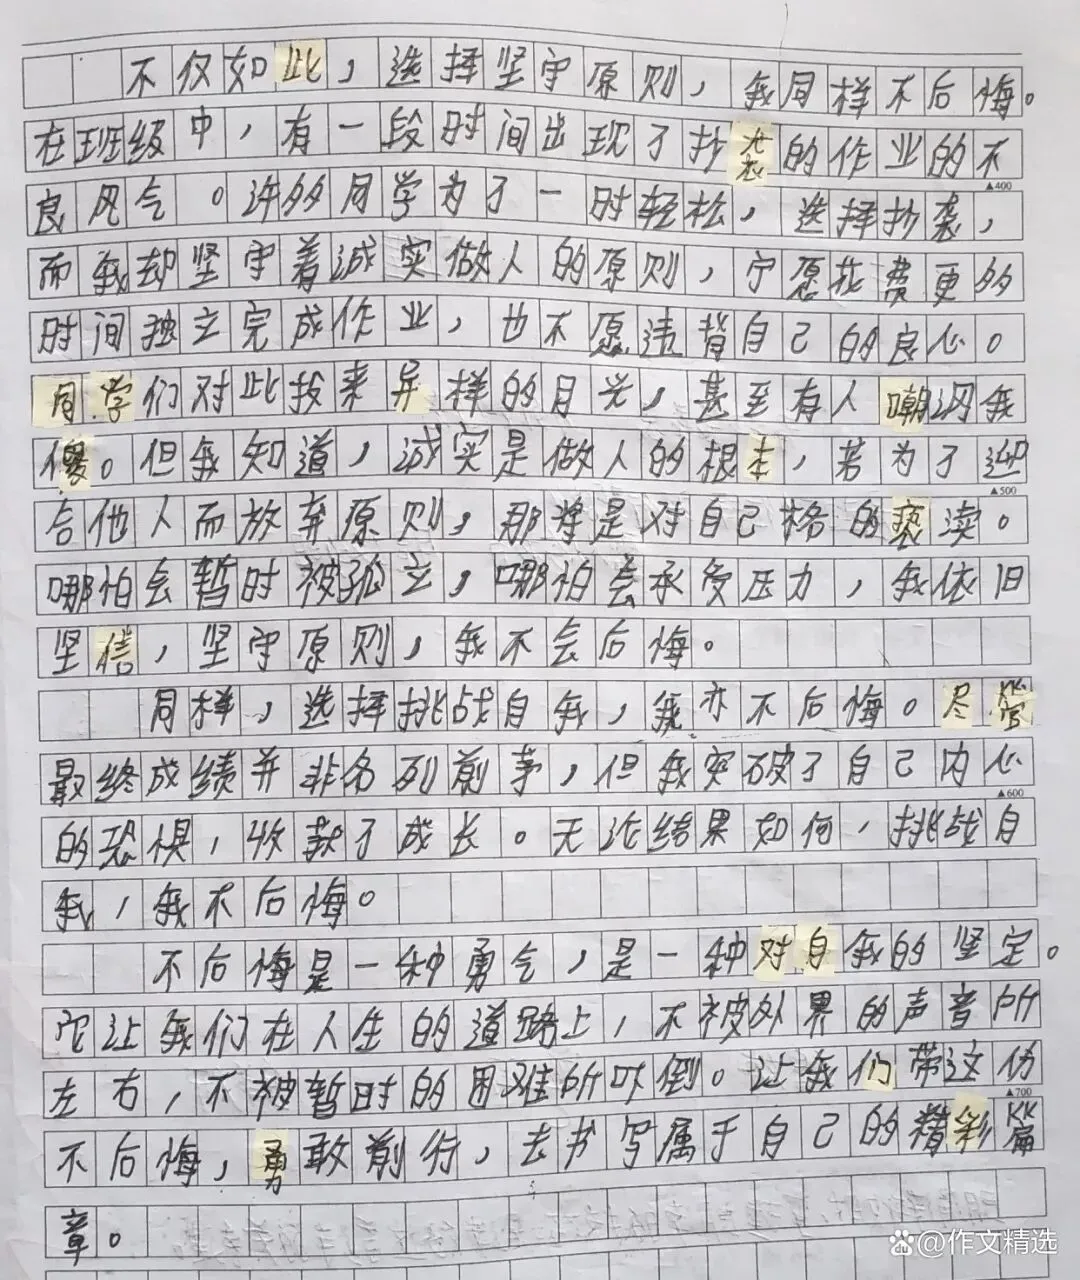 不仅如此，选择坚守原则，我同样不后悔。
在班级中，有一段时间出现了抄袭的作业的不
▲400
良风气。许多同学为了一时轻松，选择抄袭，
而我却坚守着诚实做人的原则，宁愿花费更多
时间独立完成作业，也不愿违背自己的良心。
同学们对此投来异样的目光，甚至有人嘲讽我
傻。但我知道，诚实是做人的根本，若为了迎
▲500
合他人而放弃原则，那将是对自己格的亵渎。
哪怕会暂时被孤立，哪怕会承受压力，我依旧
坚信，坚守原则，我不会后悔。
同样，选择挑战自我，我亦不后悔。尽管
最终成绩并非名列前茅，但我突破了自己内心
▲600
的恐惧，收获了成长。无论结果如何，挑战自
我，我不后悔。
不后悔是一种勇气，是一种对自我的坚定。
它让我们在人生的道路上，不被外界的声音所
左右，不被暂时的困难所吓倒。让我们带这份
▲700
不后悔，勇敢前行，去书写属于自己的精彩篇
章。
@作文精选